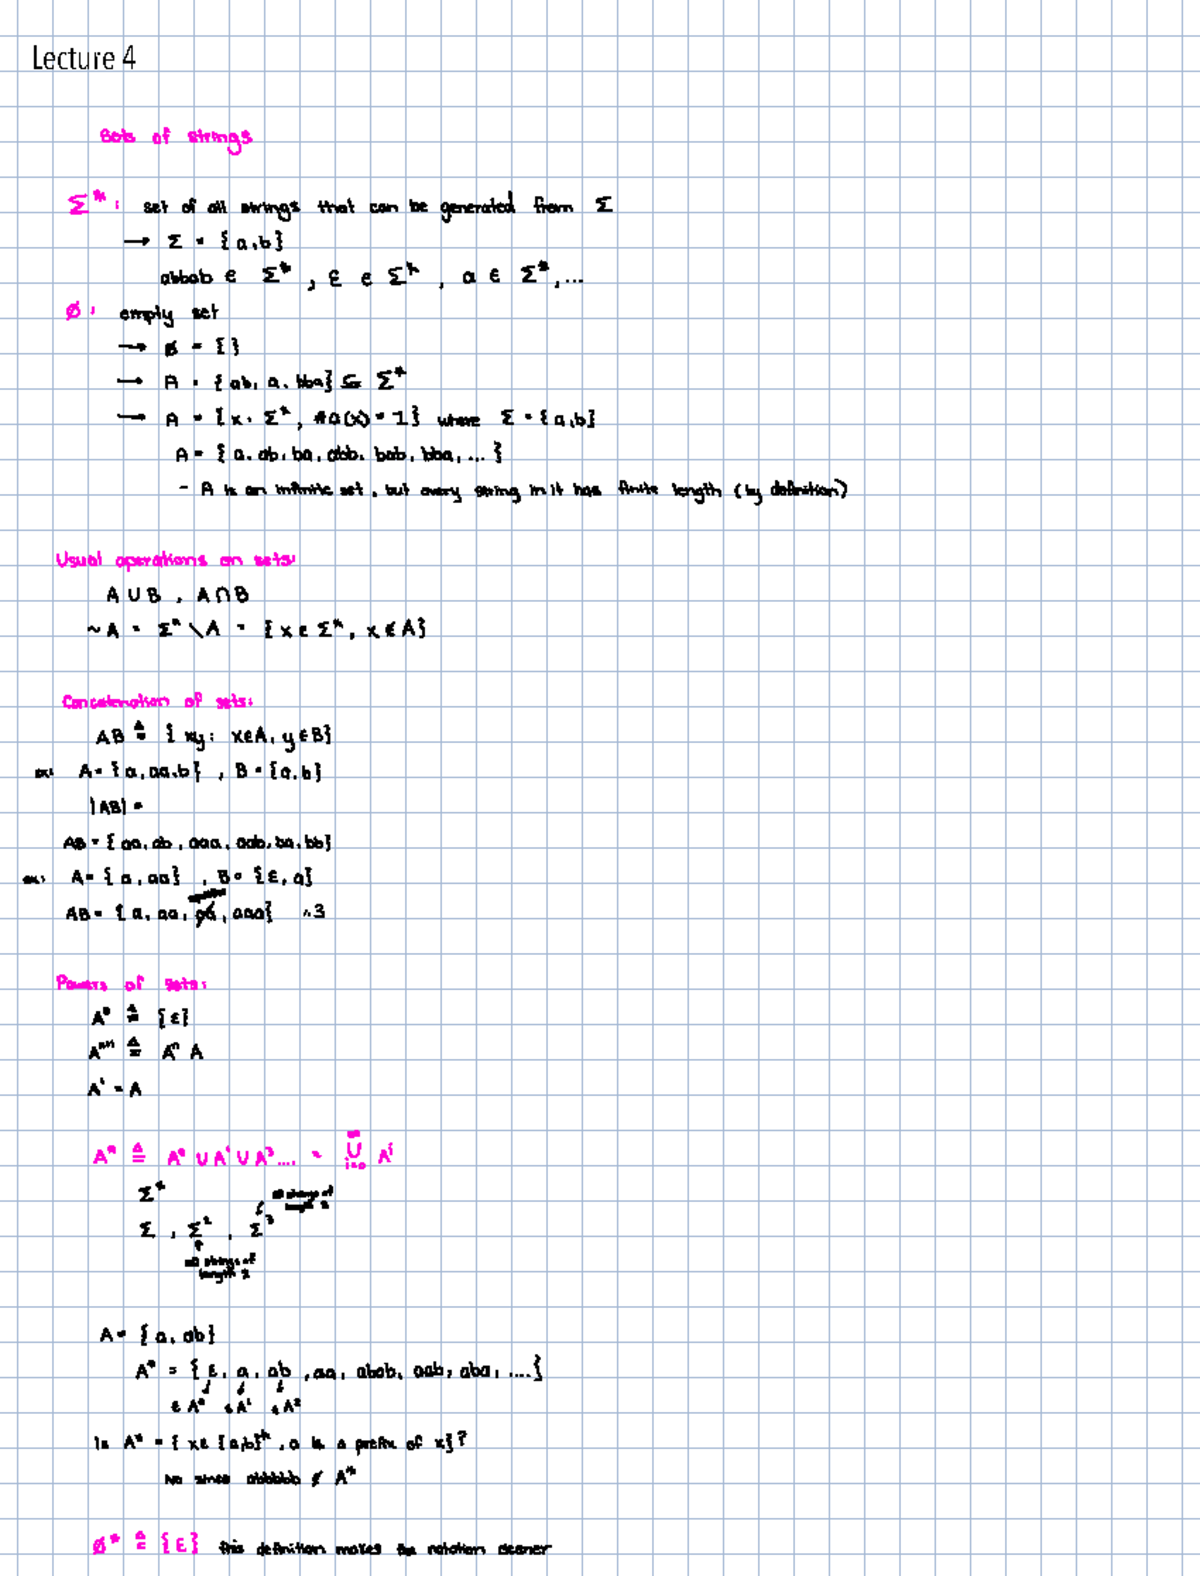 Lecture 4
Sets of strings
Σ*: set of all strings that can be generated from Σ
→ Σ = {a,b}
abbab ∈ Σ*, ε ∈ Σ*, a ∈ Σ*,...
Ø: empty set
→ Ø = {}
→ A = {ab, a, bba} ⊆ Σ*
→ A = {x: Σ*, #a(x) = 1} where Σ = {a,b}
A = {a, ab, ba, abb, bab, bba, ...}
- A is an infinite set, but every string in it has finite length (by definition)
Usual operations on sets:
A ∪ B, A ∩ B
~A = Σ* \ A = {x ∈ Σ*, x ∉ A}
Concatenation of sets:
AB ≜ {xy: x∈A, y∈B}
ex: A = {a, aa, b}, B = {a, b}
|AB| =
AB = {aa, ab, aaa, aab, ba, bb}
ex: A = {a, aa}, B = {ε, a}
AB = {a, aa, aa, aaa} 3
Powers of sets:
A⁰ ≜ {ε}
Aⁿ⁺¹ ≜ Aⁿ A
A¹ = A
A* ≜ A⁰ ∪ A¹ ∪ A².... = ∞ ∪ i=0 Aⁱ
Σ*
all strings of
length 3
Σ, Σ², Σ³
all strings of
length 2
A = {a, ab}
A* = {ε, a, ab, aa, abab, aab, aba, ....}
∈ A⁰ ∈ A¹ ∈ A²
Is A* = {x∈ {a,b}*, a is a prefix of x}?
No since abbbbb ∉ A*
Ø* ≜ {ε} this definition makes the notation cleaner